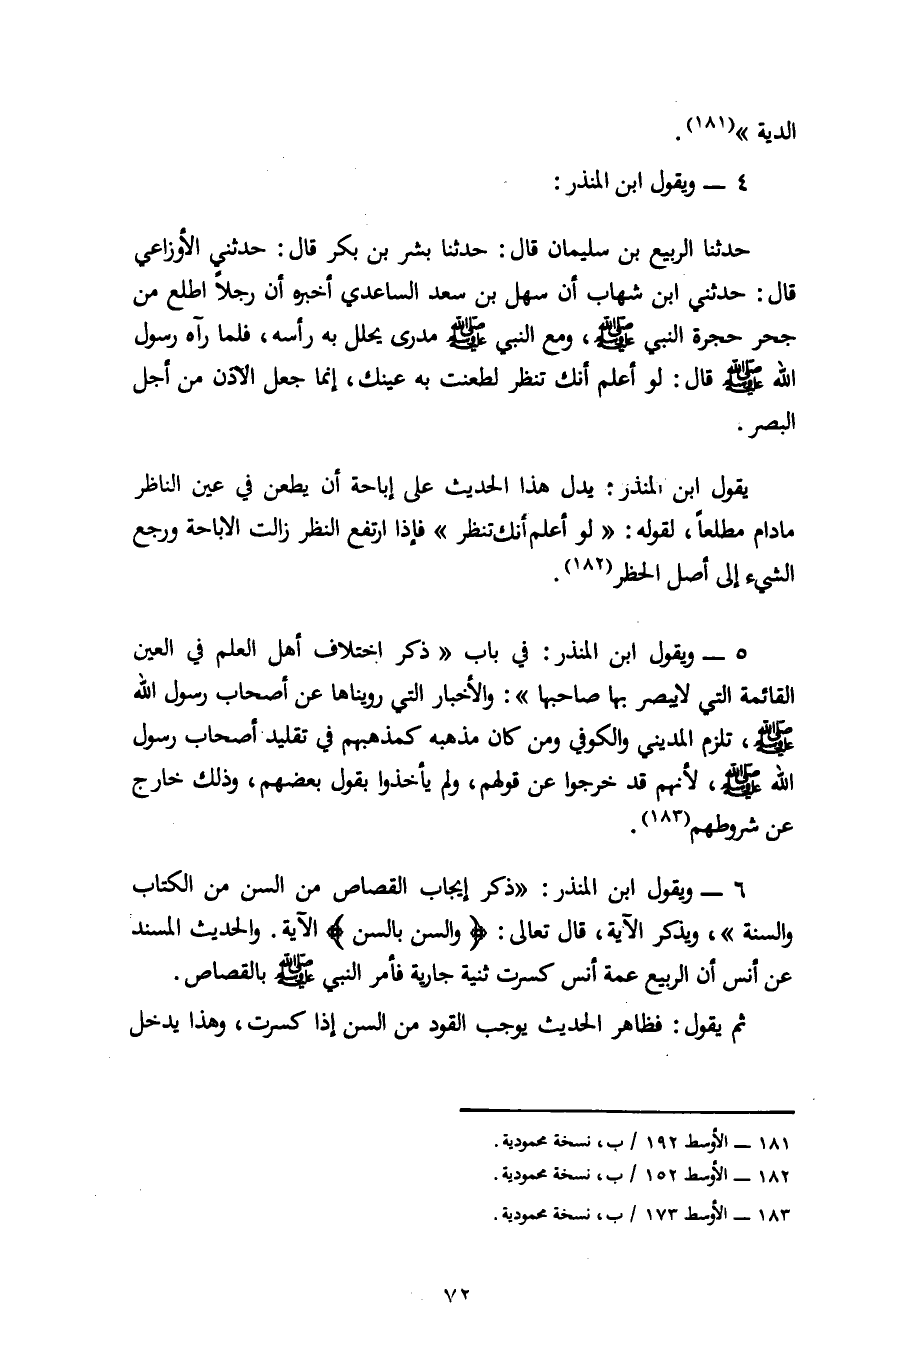 الدية »(١٨١) .
٤ ــ ويقول ابن المنذر :
حدثنا الربيع بن سليمان قال : حدثنا بشر بن بكر قال : حدثني الأوزاعي
قال : حدثني ابن شهاب أن سهل بن سعد الساعدي أخبره أن رجلاً اطلع من
جحر حجرة النبي ﷺ ، ومع النبي ﷺ مدرى يحلل به رأسه ، فلما رآه رسول
الله ﷺ قال : لو أعلم أنك تنظر لطعنت به عينك ، إنما جعل الاذن من أجل
البصر .
يقول ابن المنذر : يدل هذا الحديث على إباحة أن يطعن في عين الناظر
مادام مطلعاً ، لقوله : « لو أعلم أنك تنظر » فإذا ارتفع النظر زالت الاباحة ورجع
الشيء إلى أصل الحظر (١٨٢) .
٥ ــ ويقول ابن المنذر : في باب « ذكر اختلاف أهل العلم في العين
القائمة التي لايبصر بها صاحبها » : والأخبار التي رويناها عن أصحاب رسول الله
ﷺ ، تلزم المديني والكوفي ومن كان مذهبه كمذهبهم في تقليد أصحاب رسول
الله ﷺ ، لأنهم قد خرجوا عن قولهم ، ولم يأخذوا بقول بعضهم ، وذلك خارج
عن شروطهم(١٨٣) .
٦ ــ ويقول ابن المنذر : «ذكر إيجاب القصاص من السن من الكتاب
والسنة » ، ويذكر الآية ، قال تعالى : ﴿ والسن بالسن ﴾ الآية . والحديث المسند
عن أنس أن الربيع عمة أنس كسرت ثنية جارية فأمر النبي ﷺ بالقصاص .
ثم يقول : فظاهر الحديث يوجب القود من السن إذا كسرت ، وهذا يدخل
١٨١ ــ الأوسط ١٩٢ / ب ، نسخة محمودية .
١٨٢ ــ الأوسط ١٥٢ / ب ، نسخة محمودية .
١٨٣ ــ الأوسط ١٧٣ / ب ، نسخة محمودية .
٧٢